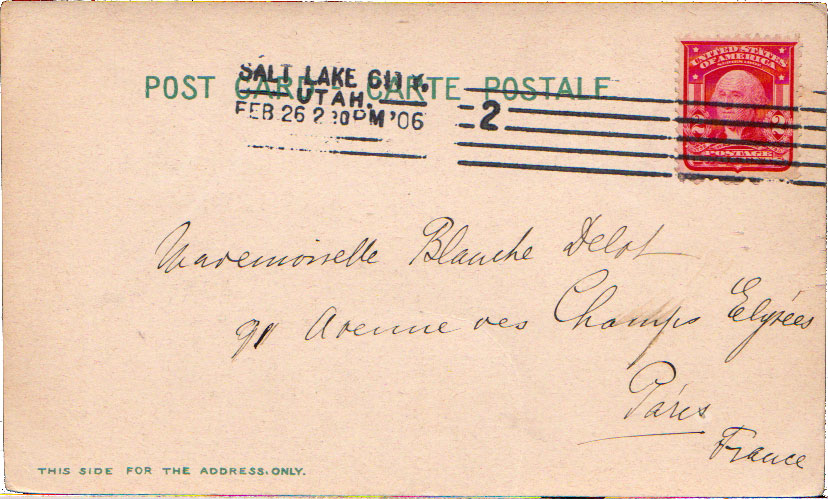 POST CARD CARTE POSTALE
SALT LAKE CITY,
UTAH.
FEB 26 2 30 PM '06
2
UNITED STATES
OF AMERICA
2 2
POSTAGE
Mademoiselle Blanche Delot
91 Avenue des Champs Elysées
Paris
France
THIS SIDE FOR THE ADDRESS.ONLY.